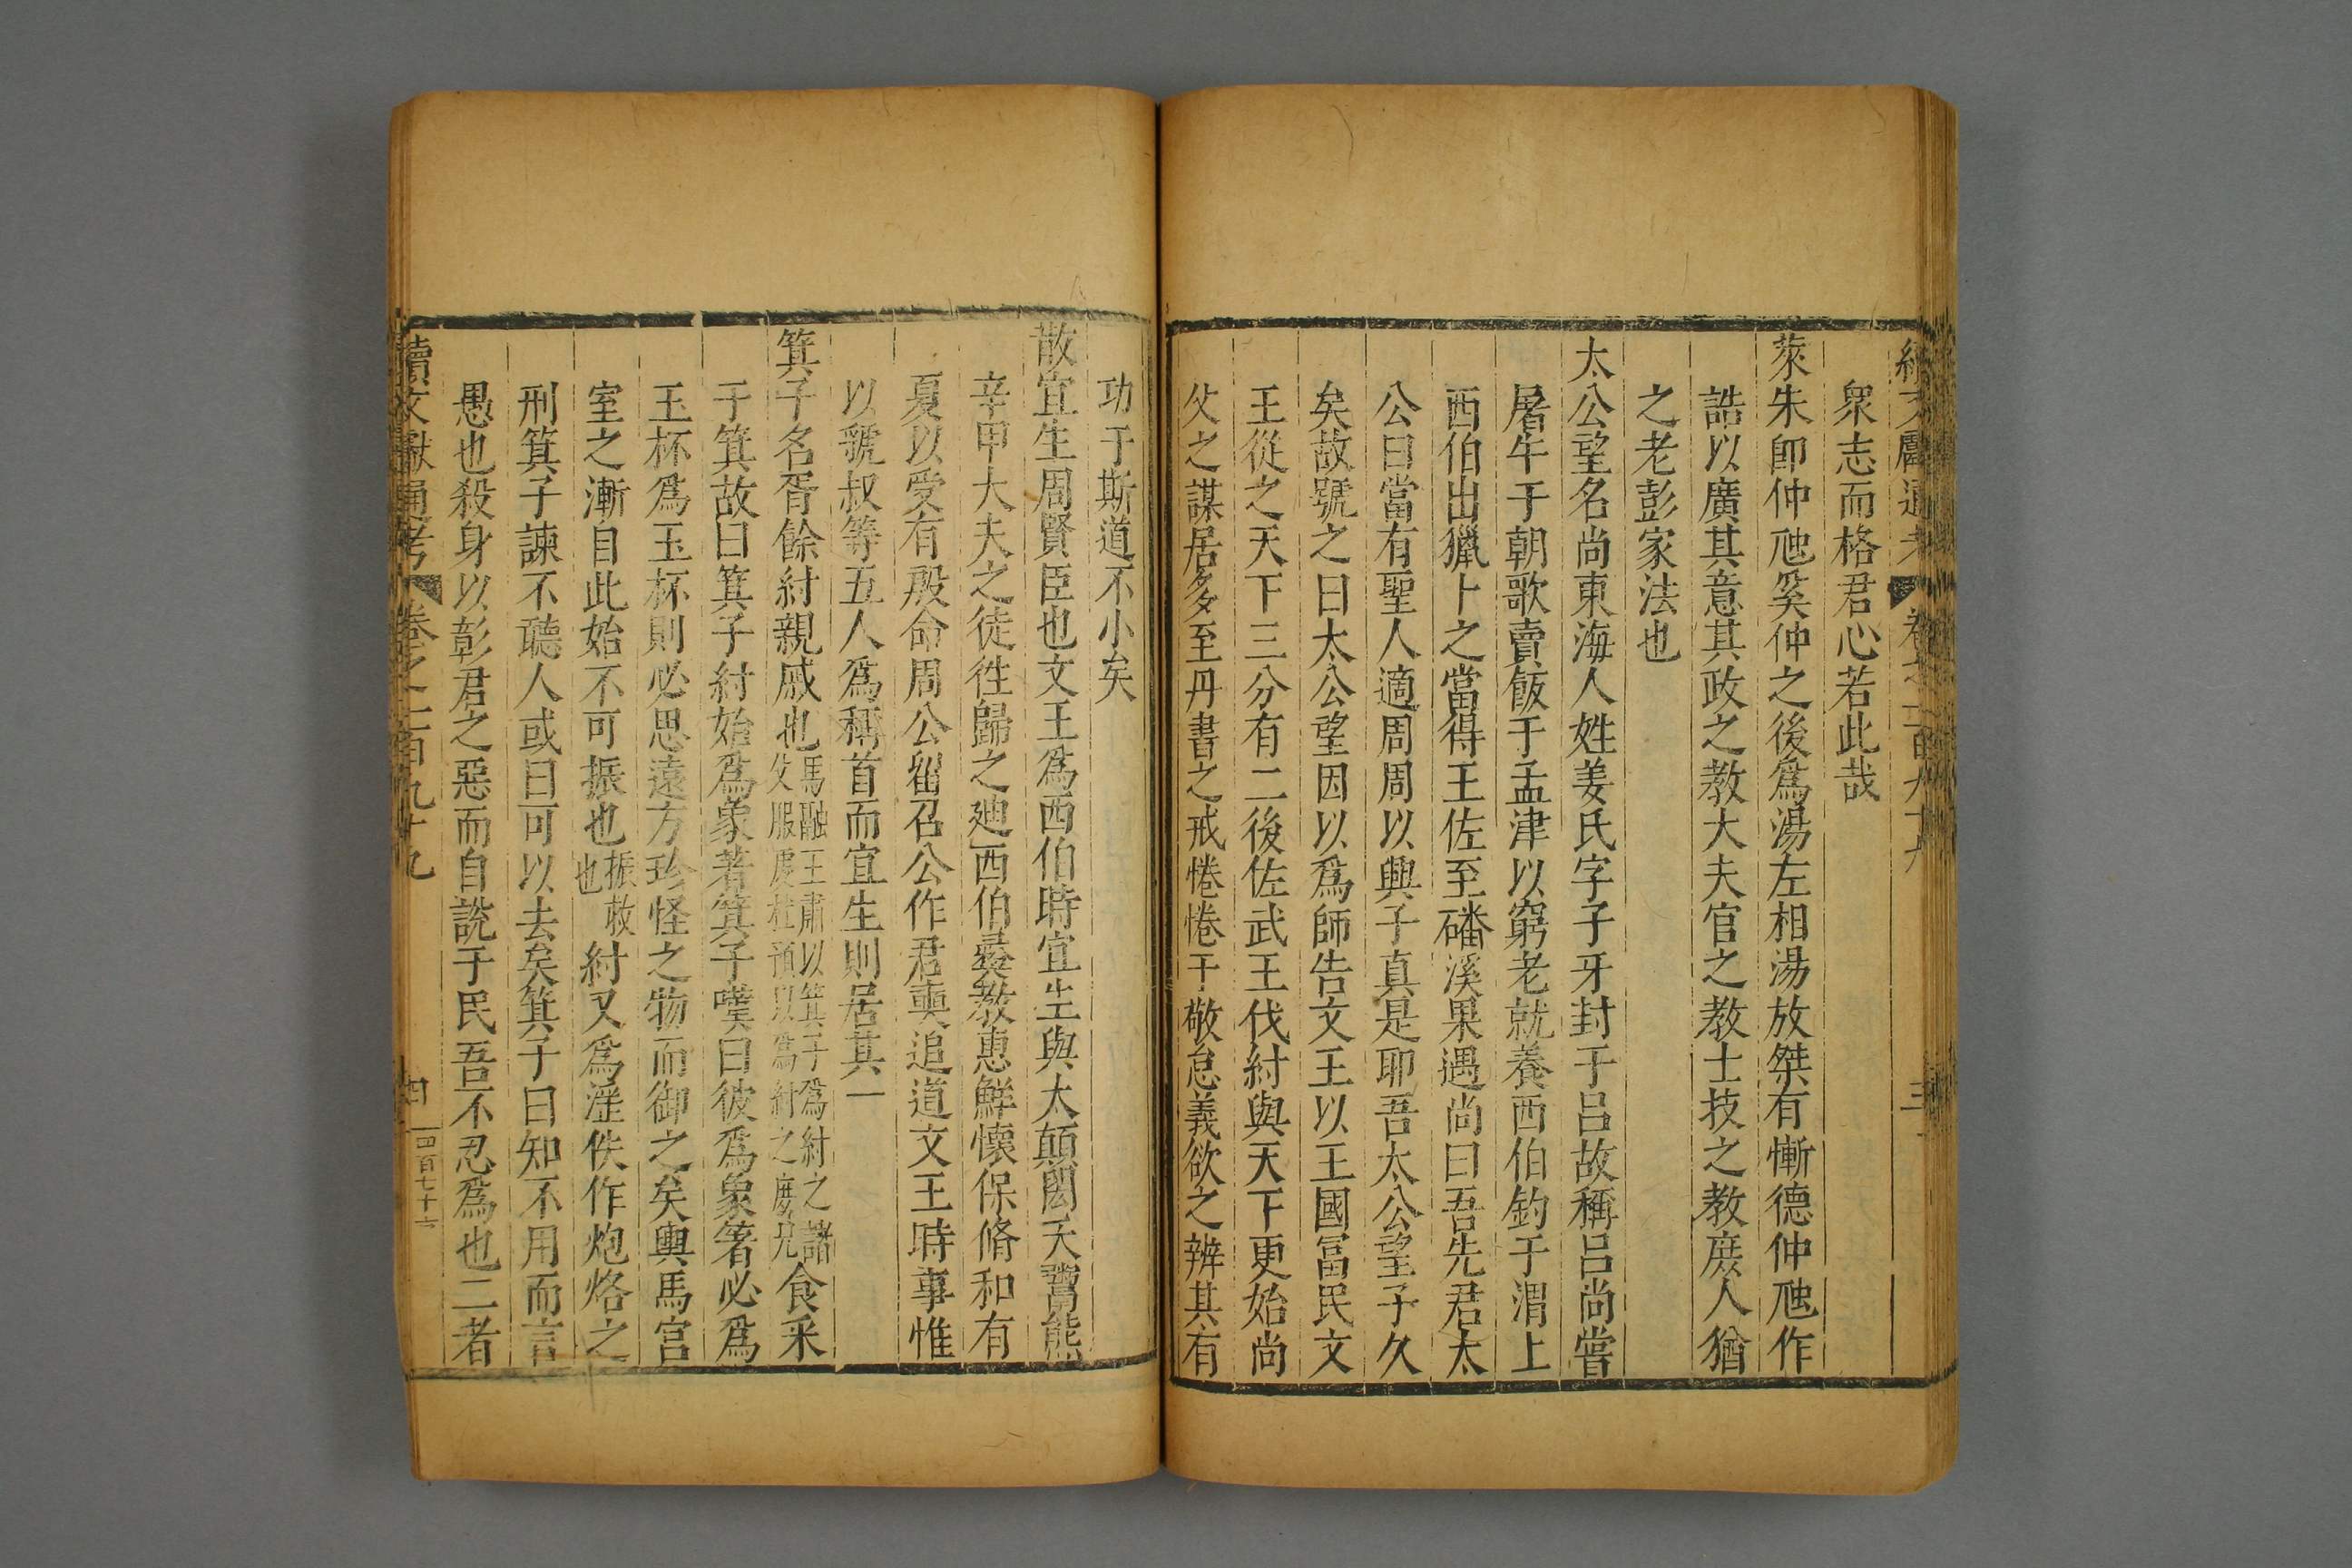 衆志而格君心若此哉
萊朱卽仲虺奚仲之後爲湯左相湯放桀有慚德仲虺作
誥以廣其意其政之教大夫官之教士技之教庶人猶
之老彭家法也
太公望名尚東海人姓姜氏字子牙封于呂故稱呂尚嘗
屠牛于朝歌賣飯于孟津以窮老就養西伯釣于渭上
西伯出獵卜之當得王佐至磻溪果遇尚曰吾先君太
公曰當有聖人適周周以興子真是耶吾太公望子久
矣故號之曰太公望因以爲師告文王以王國富民文
王從之天下三分有二後佐武王伐紂與天下更始尚
父之謀居多至丹書之戒惓惓于敬怠義欲之辨其有
功于斯道不小矣
散宜生周賢臣也文王爲西伯時宜生與太顛閎夭鬻熊
辛甲大夫之徒徃歸之廸西伯彛教惠鮮懷保脩和有
夏以受有殷命周公留召公作君奭追道文王時事惟
以虢叔等五人爲稱首而宜生則居其一
箕子名胥餘紂親戚也馬融王肅以箕子爲紂之諸父服虔杜預以爲紂之庶兄食采
于箕故曰箕子紂始爲象著箕子嘆曰彼爲象箸必爲
玉杯爲玉杯則必思遠方珍怪之物而御之矣輿馬宫
室之漸自此始不可振也振救也紂又爲滛佚作炮烙之
刑箕子諫不聽人或曰可以去矣箕子曰知不用而言
愚也殺身以彰君之惡而自說于民吾不忍爲也二者
續文獻通考 卷之二百九十九 四 四百七十六